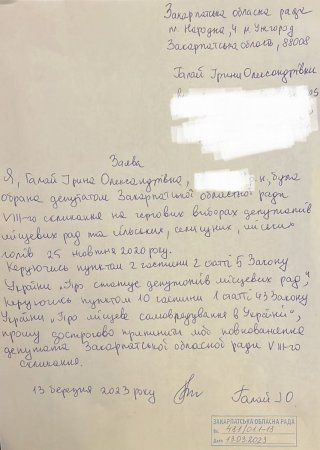 Закарпатська обласна рада
пл. Народна, 4 м. Ужгород
Закарпатська область, 88008
Галай Ірини Олександрівни
Заява
Я, Галай Ірина Олександрівна, н, була
обрана депутатом Закарпатської обласної ради
VIII-го скликання на чергових виборах депутатів
місцевих рад та сільських, селищних, міських
голів 25 жовтня 2020 року.
Керуючись пунктом 2 частини 2 статті 5 Закону
України „Про статус депутатів місцевих рад",
керуючись пунктом 10 частини 1 статті 43 Закону
України „Про місцеве самоврядування в Україні",
прошу достроково припинити мої повноваження
депутата Закарпатської обласної ради VIII-го
скликання.
13 березня 2023 року Галай І.О
ЗАКАРПАТСЬКА ОБЛАСНА РАДА
№ 481/01.1-13
Дата 13.03.2023